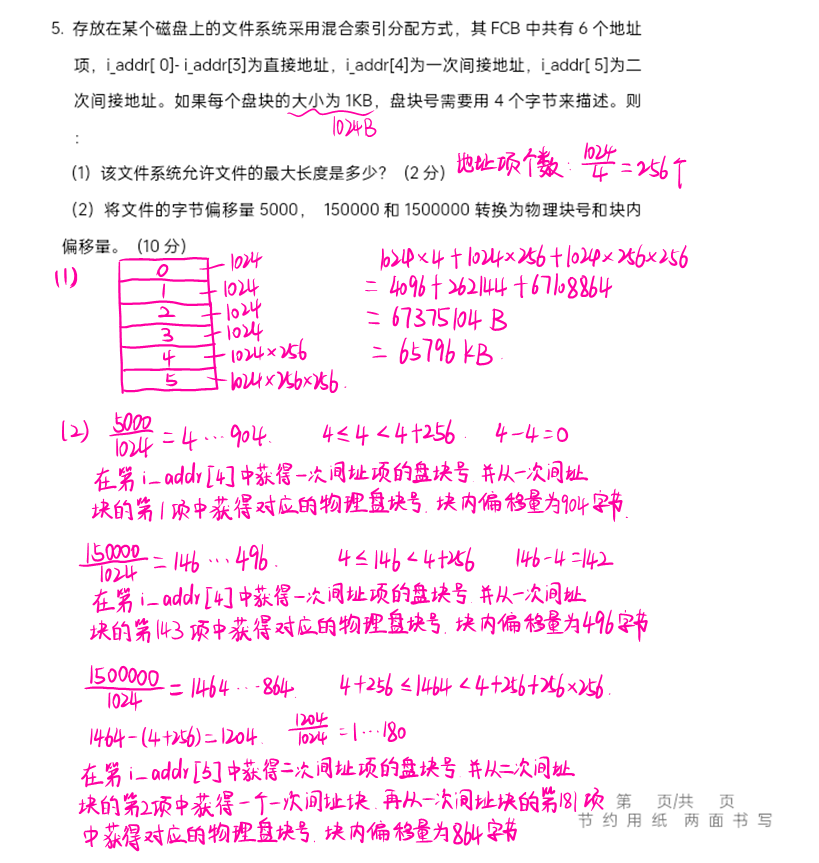 5. 存放在某个磁盘上的文件系统采用混合索引分配方式，其 FCB 中共有 6 个地址
项，i_addr[ 0]- i_addr[3]为直接地址，i_addr[4]为一次间接地址，i_addr[ 5]为二
次间接地址。如果每个盘块的大小为 1KB，盘块号需要用 4 个字节来描述。则
1024B
：
（1）该文件系统允许文件的最大长度是多少？（2 分） 地址项个数: 1024/4 = 256个
（2）将文件的字节偏移量 5000， 150000 和 1500000 转换为物理块号和块内
偏移量。（10 分）
(1)
0 1024
1 1024
2 1024
3 1024
4 1024×256
5 1024×256×256.
1024×4+1024×256+1024×256×256
= 4096+262144+67108864
= 67375104 B
= 65796 KB.
(2) 5000/1024 = 4 … 904. 4 ≤ 4 < 4+256. 4-4=0
在第 i_addr[4]中获得一次间址项的盘块号 并从一次间址
块的第1项中获得对应的物理盘块号. 块内偏移量为904字节.
150000/1024 = 146 … 496. 4 ≤ 146 < 4+256 146-4=142
在第 i_addr[4]中获得一次间址项的盘块号 并从一次间址
块的第143项中获得对应的物理盘块号. 块内偏移量为496字节
1500000/1024 = 1464 … 864. 4+256 ≤ 1464 < 4+256+256×256.
1464-(4+256)=1204. 1204/1024 = 1 … 180
在第 i_addr[5]中获得二次间址项的盘块号 并从二次间址
块的第2项中获得一个一次间址块. 再从一次间址块的第181项
中获得对应的物理盘块号. 块内偏移量为864字节
第 页/共 页
节约用纸 两面书写